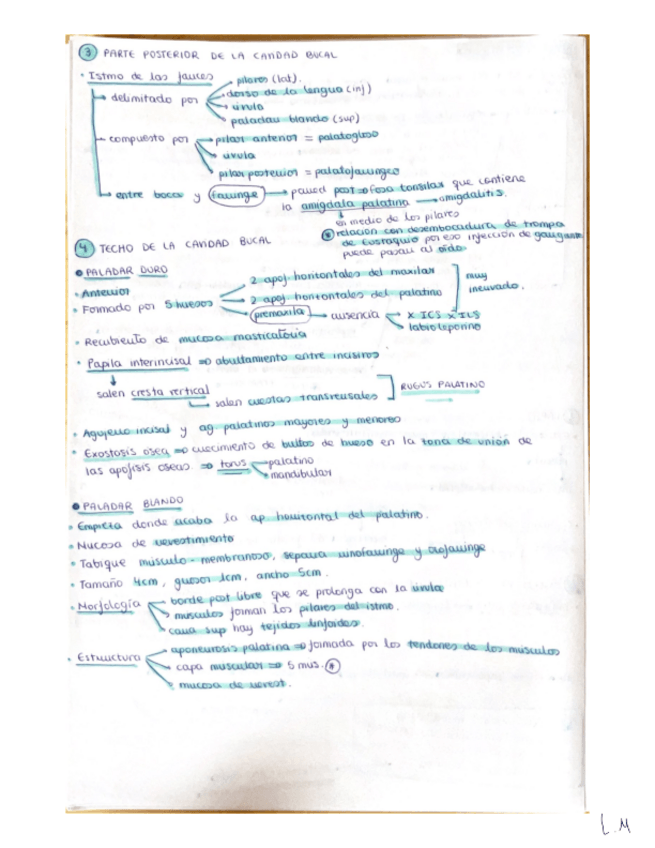 3 PARTE POSTERIOR DE LA CAVIDAD BUCAL
• Istmo de las fauces
delimitado por
pilares (lat).
dorso de la lengua (inf)
úvula
paladar blando (sup)
compuesto por
pilar anterior = palatogloso
úvula
pilar posterior = palatofaringeo
entre boca y faringe → pared post ⇒ fosa tonsilar que contiene
la amígdala palatina → amigdalitis.
↓
en medio de los pilares
* relación con desembocadura de trompa
de Eustaquio por eso infección de garganta
puede pasar al oído.
4 TECHO DE LA CAVIDAD BUCAL
• PALADAR DURO
• Anterior
• Formado por 5 huesos
2 apof horizontales del maxilar
2 apof horizontales del palatino
muy
inervado.
premaxila → ausencia
X ICS X ILS
labio leporino
• Recubierto de mucosa masticatoria
• Papila interincisal ⇒ abultamiento entre incisivos
↓
salen cresta vertical
salen crestas transversales
RUGUS PALATINO
• Agujero incisal y ag palatinos mayores y menores
• Exostosis osea ⇒ crecimiento de bultos de hueso en la zona de unión de
las apófisis oseas ⇒ torus
palatino
mandibular
• PALADAR BLANDO
• Empieza donde acaba la ap horizontal del palatino.
• Mucosa de revestimiento
• Tabique músculo-membranoso, separa rinofaringe y orofaringe
• Tamaño 4cm, grosor 1cm, ancho 5cm.
• Morfología
borde post libre que se prolonga con la úvula
músculos forman los pilares del istmo.
cara sup hay tejidos linfoides.
• Estructura
aponeurosis palatina ⇒ formada por los tendones de los músculos
capa muscular ⇒ 5 mus. *
mucosa de revest.
L.M